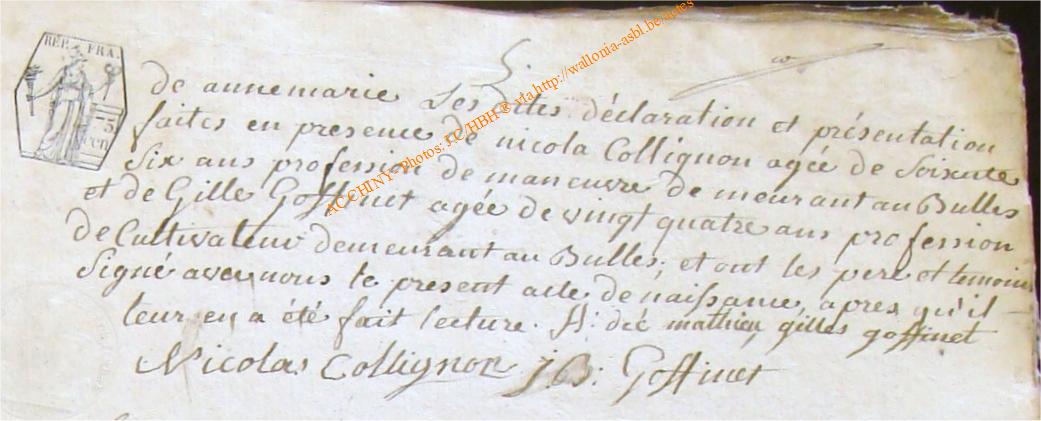 REP. FRA.
5.
de annemarie Les dites déclaration et présentation
faites en presence de nicola Collignon agée de Soixente
Six ans profession de maneuvre de meurant au Bulles
et de Gille Goffinet agée de vingt quatre ans profession
de Cultivateur demeurant au Bulles, et ont les pere et temoins
Signé avec nous le present acte de naissance, apres qu'il
leur en a été fait lecture. mathieu gilles goffinet
Nicolas Collignon J.B: Goffinet
ACCHINY - Photos: J.C/HBH ® via http://wallonia-asbl.be/actes